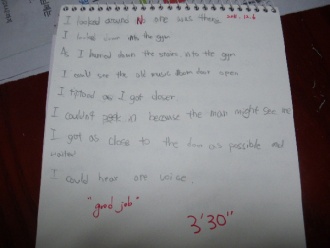 I looked around No one was there.
I looked down into the gym
As I hurried down the stairs into the gym
I could see the old men's room door open
I tiptoed as I got closer.
I couldn't peek in because the man might see me
I got as close to the door as possible and
waited
I could hear one voice.
"good job"
3'30"